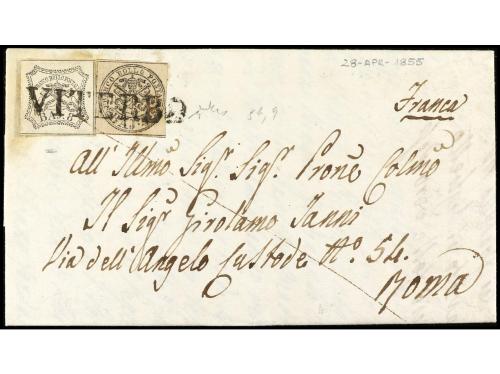 28-APR-1855
FRANCO BOLLO POSTALE
BAJ. 8
VITERBO
Franca
All' Illmo Sigr. Sigr. Prone Colmo
Il Sigr Girolamo Ianni
Via dell' Angelo Custode No. 54.
Roma